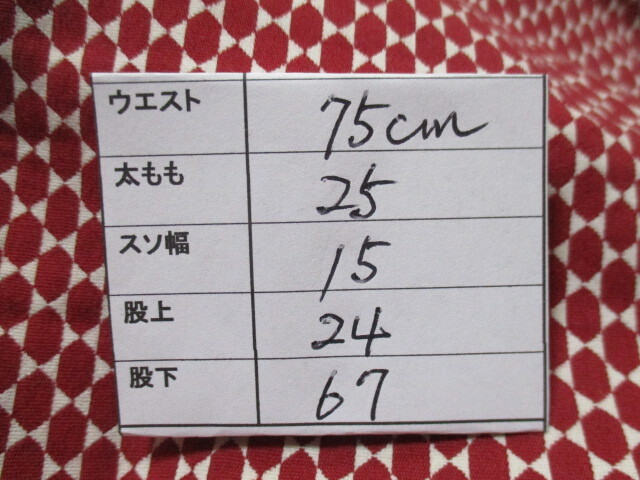 ウエスト 75cm
太もも 25
スソ幅 15
股上 24
股下 67